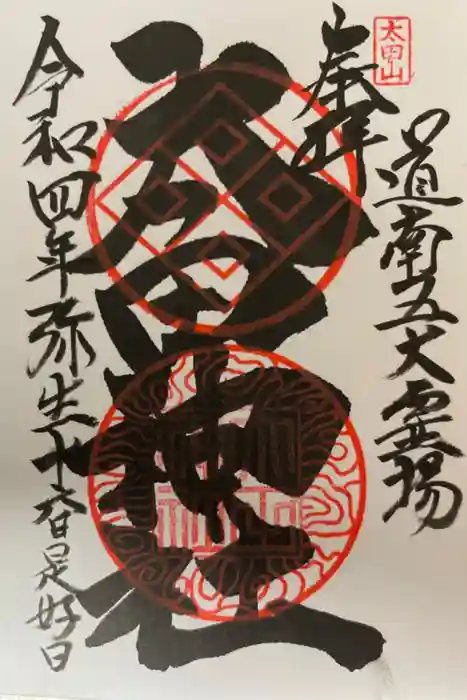 道南五大霊場
太田山
奉拝
太田神社
令和四年弥生十六日是好日